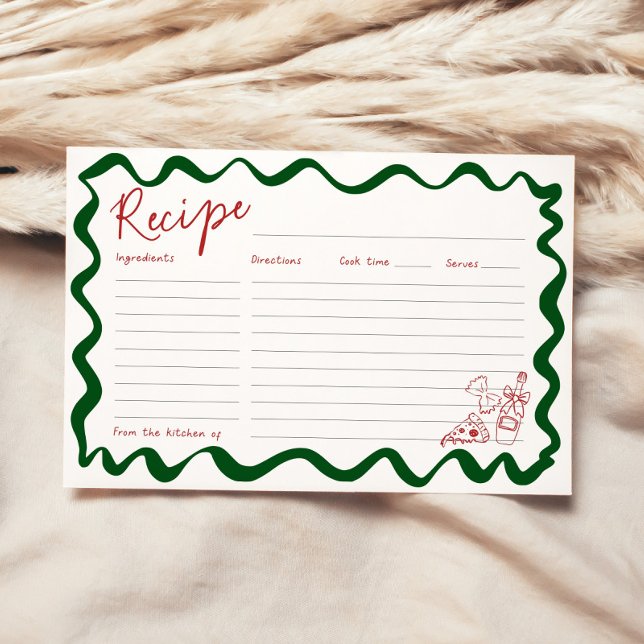 Recipe
Ingredients
Directions Cook time Serves
From the kitchen of